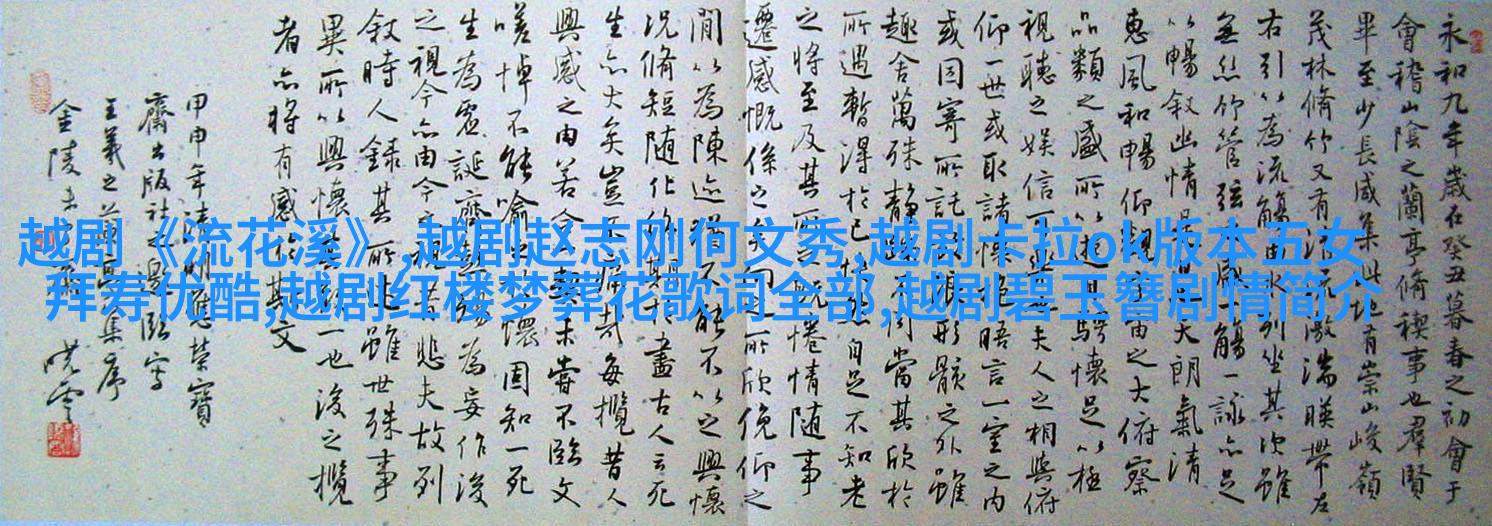 越剧《流花溪》,越剧赵志刚何文秀,越剧卡拉ok版本五女
拜寿优酷,越剧红楼梦葬花歌词全部,越剧碧玉簪剧情简介
永和九年歲在癸丑暮春之初會于
會稽山陰之蘭亭脩禊事也羣賢
畢至少長咸集此地有崇山峻嶺
茂林脩竹又有清流激湍暎帶左
右引以為流觴曲水列坐其次雖
無絲竹管弦之盛一觴一詠亦足
以暢敘幽情是日也天朗氣清
惠風和暢仰觀宇宙之大俯察
品類之盛所以遊目騁懷足以極
視聽之娛信可樂也夫人之相與俯
仰一世或取諸懷抱晤言一室之內
或因寄所託放浪形骸之外雖
趣舍萬殊靜躁不同當其欣於
所遇暫得於己快然自足不知老
之將至及其所之既惓情隨事
遷感慨係之矣向之所欣俛仰之
間以為陳迹猶不能不以之興懷
況脩短隨化終期於盡古人云死
生亦大矣豈不痛哉每攬昔人
興感之由若合一契未嘗不臨文
嗟悼不能喻之於懷固知一死
生為虛誕齊彭殤為妄作後
之視今亦由今之視昔悲夫故列
敘時人錄其所述雖世殊事
異所以興懷其致一也後之攬
者亦將有感於斯文
甲申年清明應榮寶
齋出版社之邀臨寫
王羲之蘭亭集序
金陵